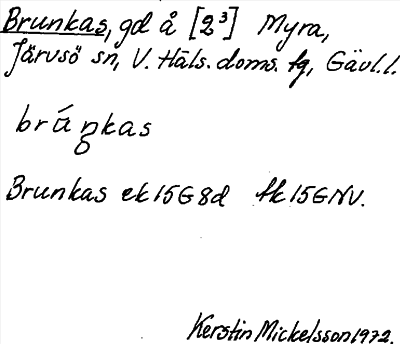 Brunkas, gd å [2³] Myra,
Järvsö sn, V. Häls. doms. fg, Gävl.l.
brúŋkas
Brunkas ek 15G8d fk 15GNV.
Kerstin Mickelsson 1972.